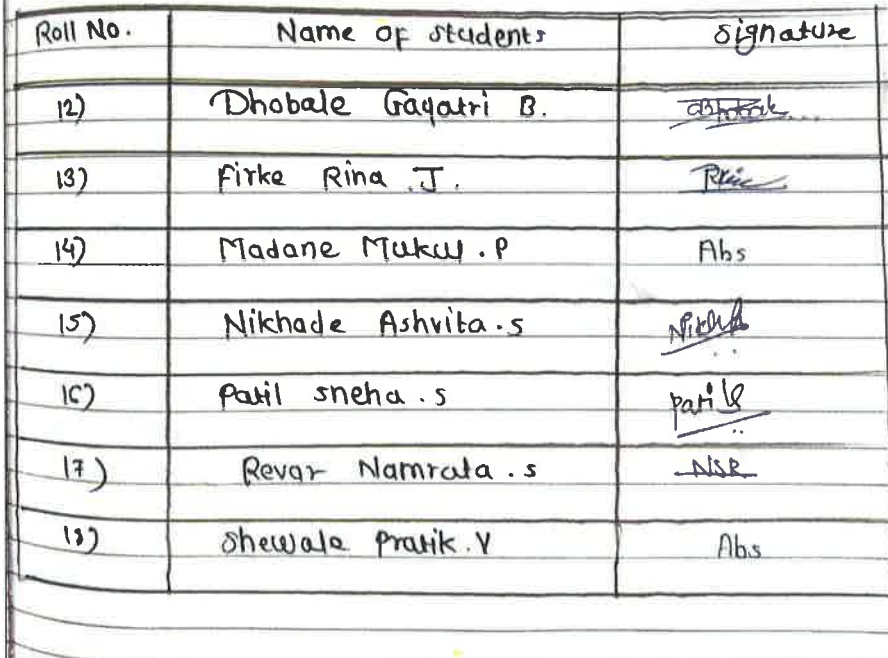 Roll No. Name of students signature
12) Dhobale Gayatri B.
13) Firke Rina .J.
14) Madane Mukul . P Abs
15) Nikhade Ashvita . s
16) Patil sneha . s Patil
17) Revar Namrata . s NSR
18) Shewale Pratik . V Abs